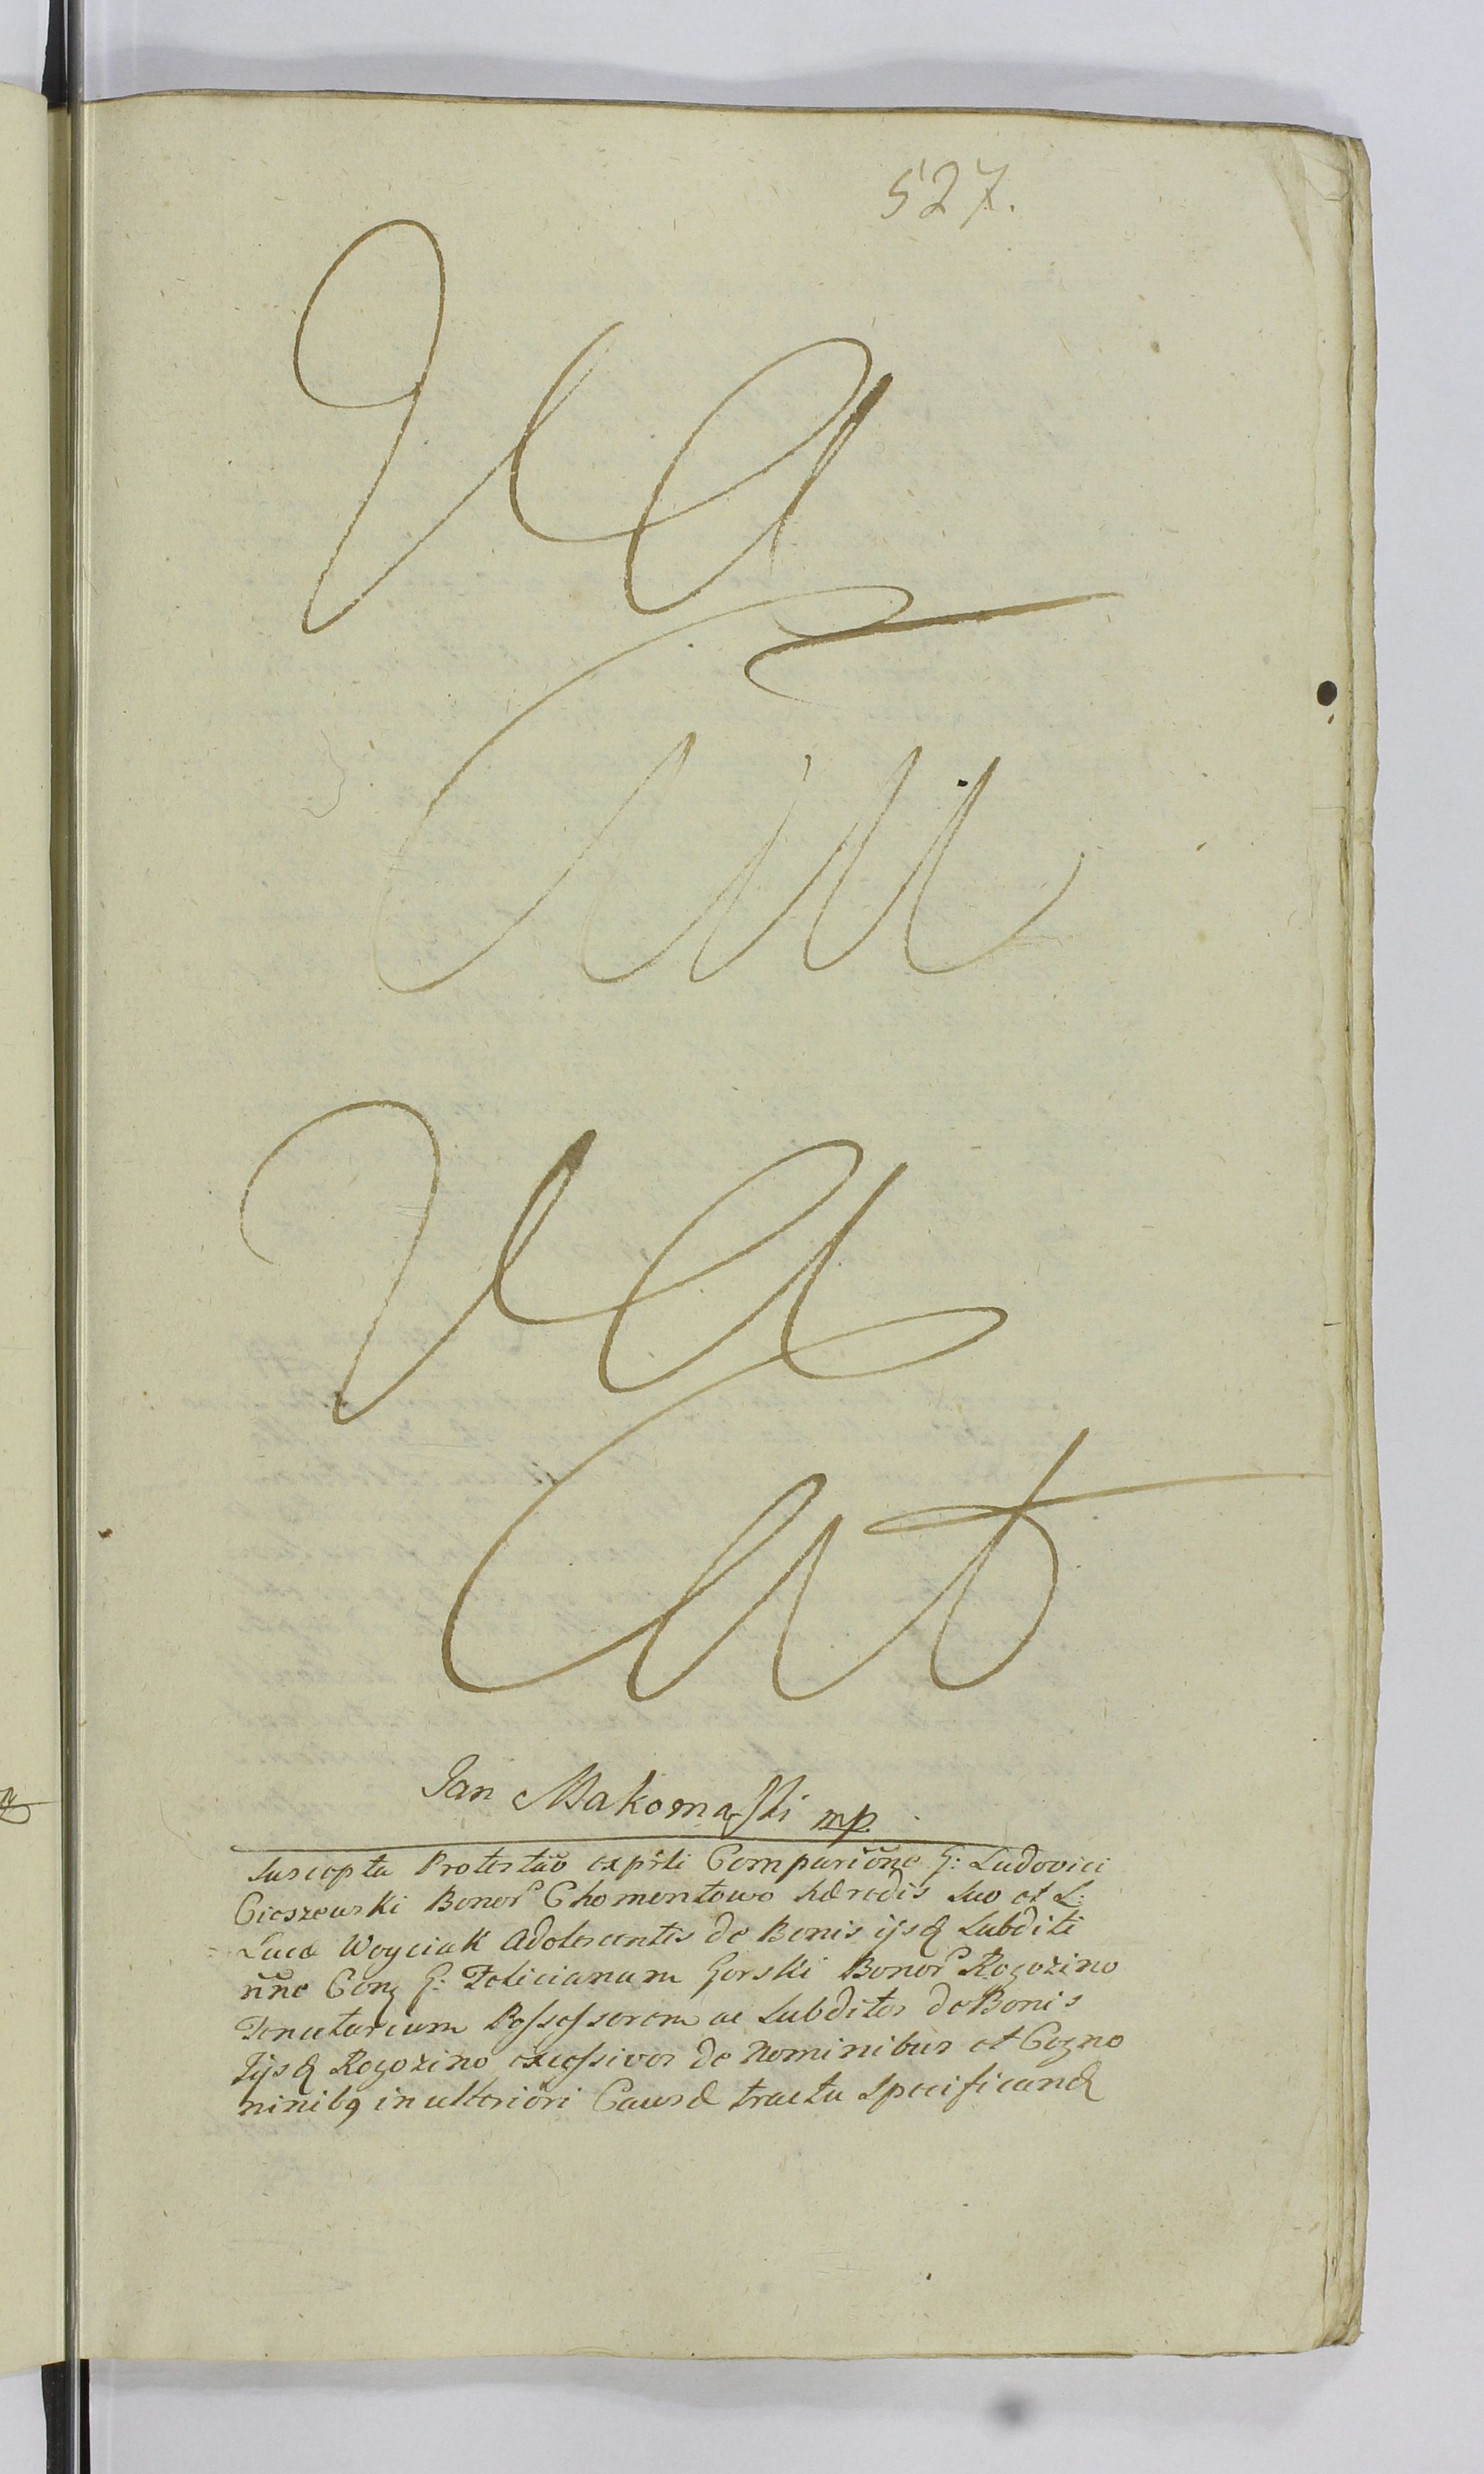 527.
Vacat
Jan Makomaski mp.
Suscepta Protestao͠ exp͠sti Comparic͠one G: Ludovici
Cieszewski Bonor͠ Chomentowo hæredis suo et L:
Lucæ Woyciak Adolescentis de Bonis ijsq Subditi
n͠ne Con̄ G: Felicianum Gorski Bonor͠ Rogozino
Tenutarium Possessorem ac Subditos de Bonis
Ijsq Rogozino excessivos de Nominibus et Cogno
minibq in ulteriori Causæ tractu specificand